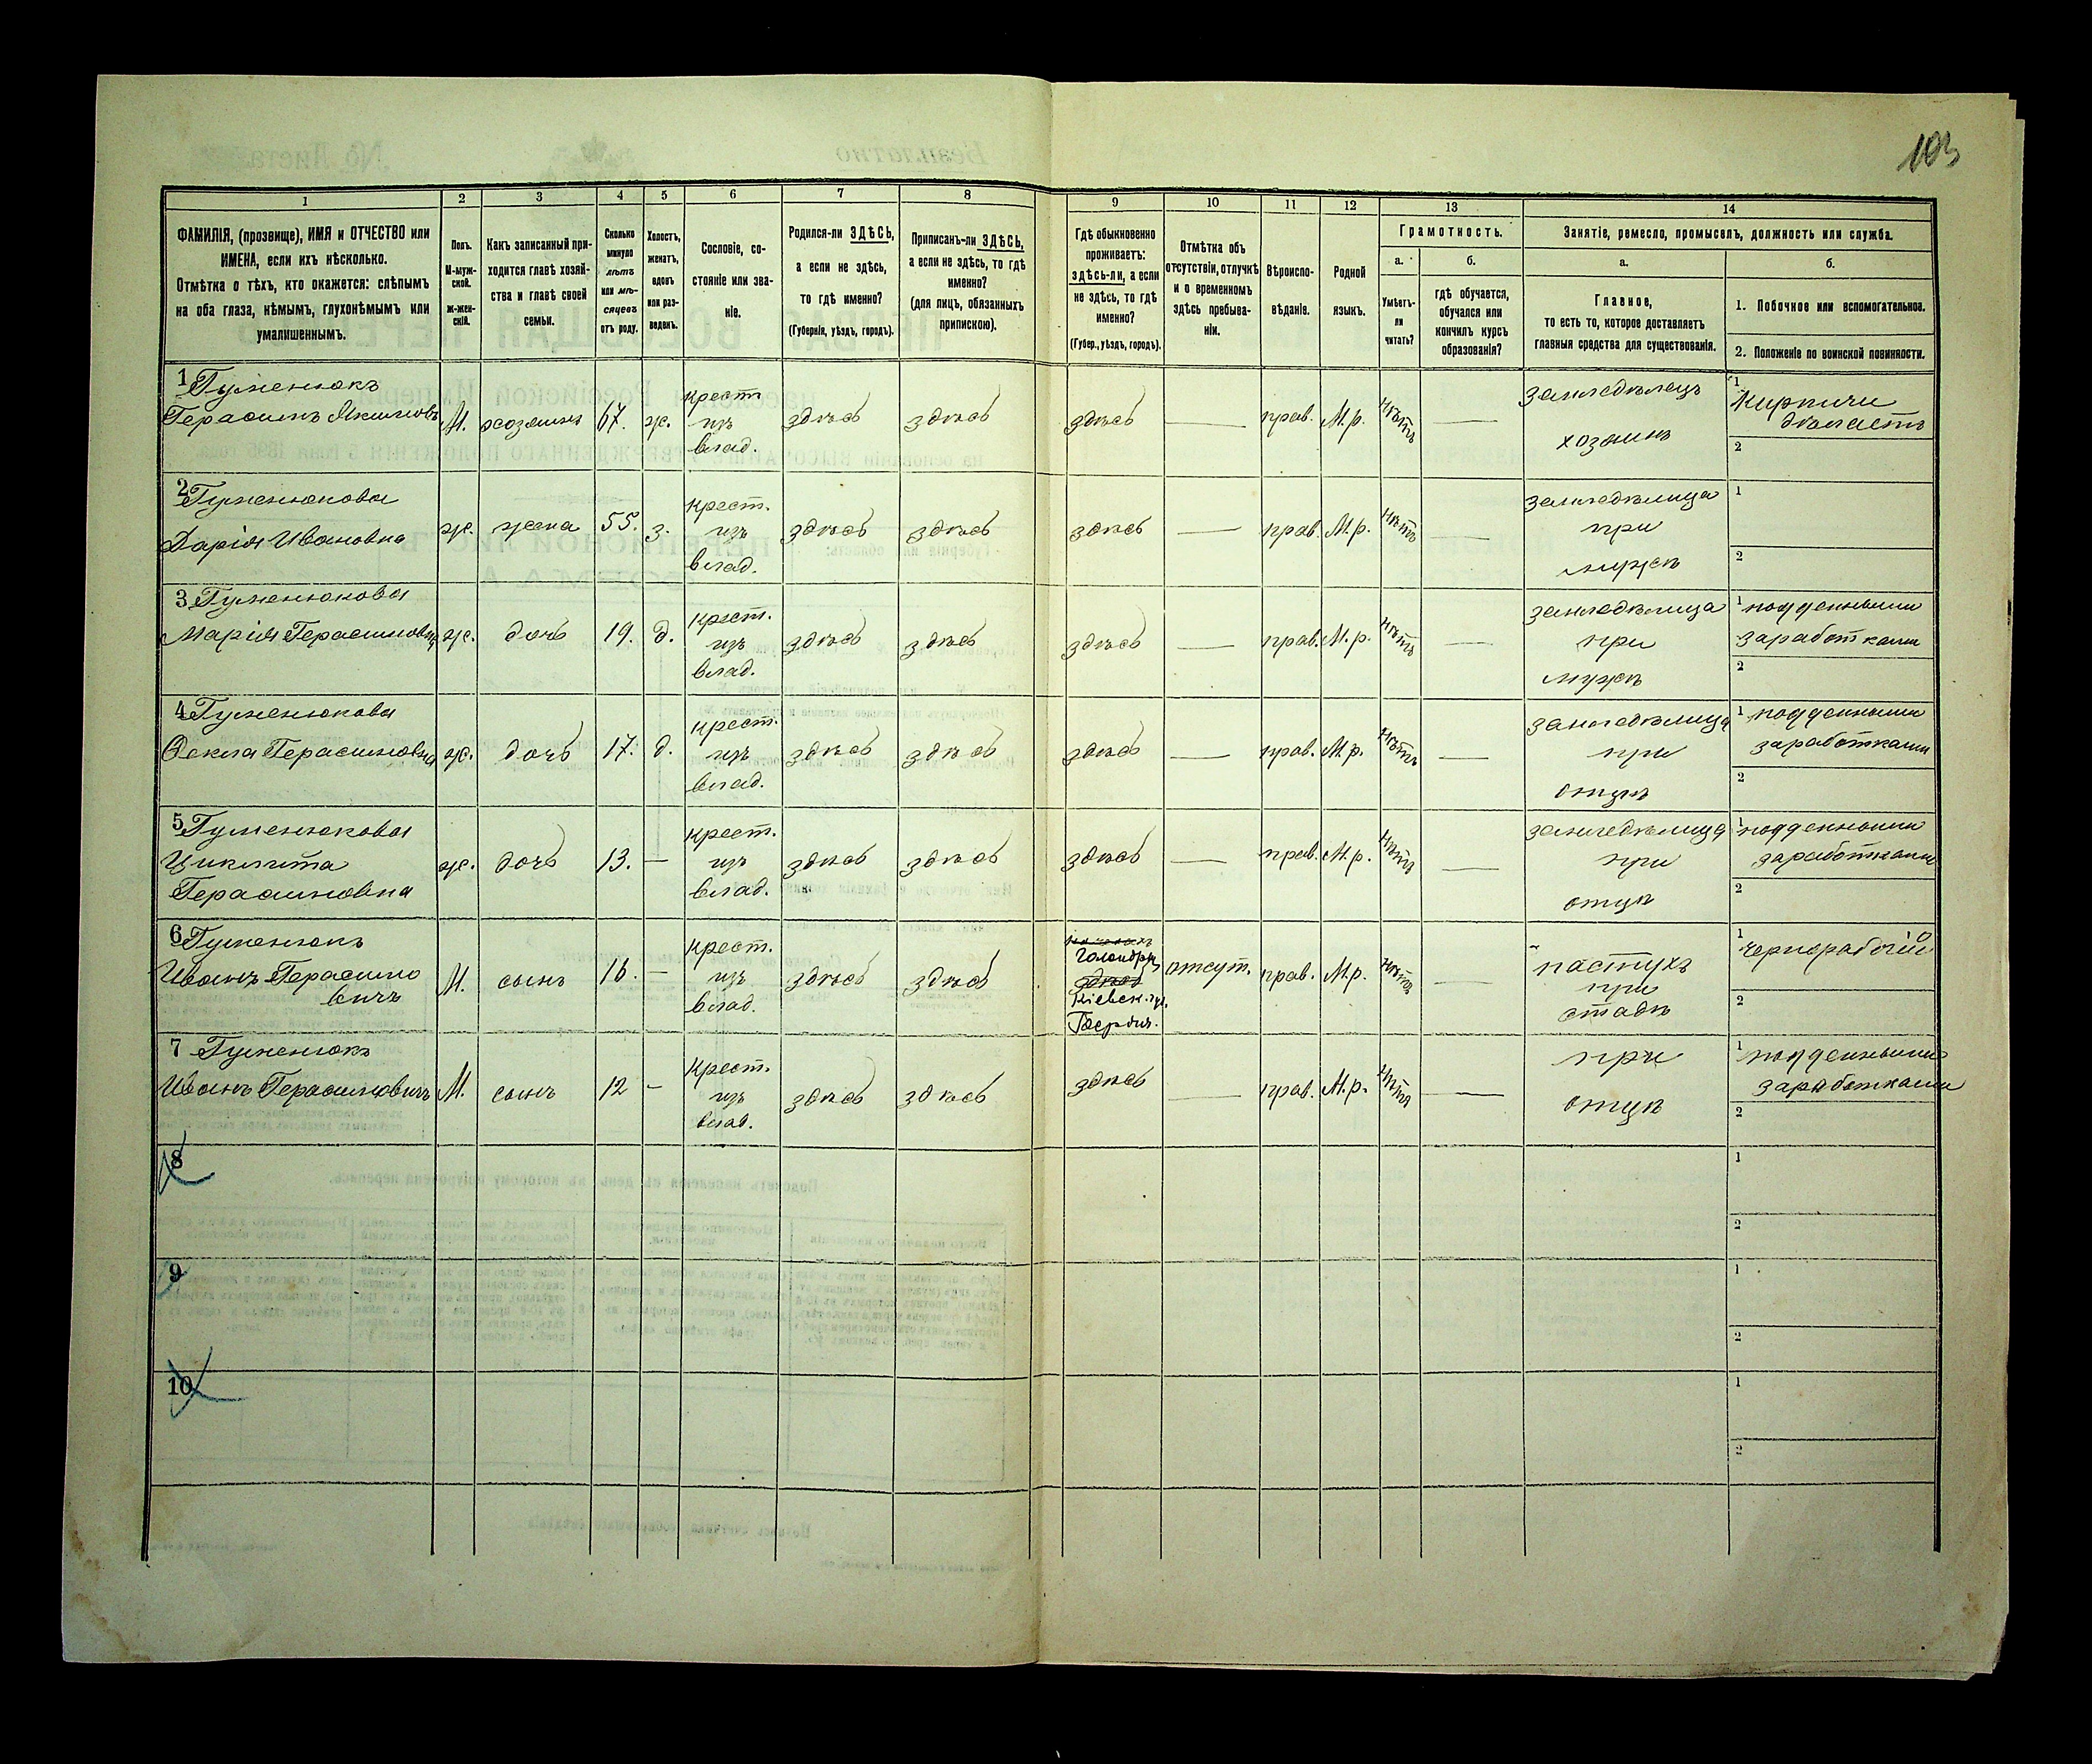 103
1
2
3
4
5
6
7
8
9
10
11
12
13
14
ФАМИЛІЯ, (прозвище), ИМЯ и ОТЧЕСТВО или
ИМЕНА, если ихъ нѣсколько.
Отмѣтка о тѣхъ, кто окажется: слѣпымъ
на оба глаза, нѣмымъ, глухонѣмымъ или
умалишеннымъ.
Полъ.
М-муж-
ской.
Ж-жен-
скій.
Какъ записанный при-
ходится главѣ хозяй-
ства и главѣ своей
семьи.
Сколько
минуло
лѣтъ
или мѣ-
сяцевъ
отъ роду.
Холостъ,
женатъ,
вдовъ
или раз-
веденъ.
Сословіе, со-
стояніе или зва-
ніе.
Родился-ли ЗДѢСЬ,
а если не здѣсь,
то гдѣ именно?
(Губернія, уѣздъ, городъ).
Приписанъ-ли ЗДѢСЬ,
а если не здѣсь, то гдѣ
именно?
(для лицъ, обязанныхъ
припискою).
Гдѣ обыкновенно
проживаетъ:
здѣсь-ли, а если
не здѣсь, то гдѣ
именно?
(Губер., уѣздъ, городъ).
Отмѣтка объ
отсутствіи, отлучкѣ
и о временномъ
здѣсь пребыва-
ніи.
Вѣроиспо-
вѣданіе.
Родной
языкъ.
Грамотность.
а.
Умѣетъ-
ли
читать?
б.
гдѣ обучается,
обучался или
кончилъ курсъ
образованія?
Занятіе, ремесло, промыселъ, должность или служба.
а.
Главное,
то есть то, которое доставляетъ
главныя средства для существованія.
б.
1. Побочное или вспомогательное.
2. Положеніе по воинской повинности.
1 Гуменюкъ
Герасимъ Якимовъ
М.
хозяинъ
67.
ж.
крест.
изъ
влад.
здѣсь
здѣсь
здѣсь
—
прав.
М.р.
нѣтъ
—
земледѣлецъ
хозяинъ
1 Кирпичи
дѣлаетъ
2
2 Гуменюкова
Дарія Ивановна
ж.
жена
55.
з.
крест.
изъ
влад.
здѣсь
здѣсь
здѣсь
—
прав.
М.р.
нѣтъ
—
земледѣлица
при
мужѣ
1
2
3 Гуменюкова
Марія Герасимовна
ж.
дочь
19.
д.
крест.
изъ
влад.
здѣсь
здѣсь
здѣсь
—
прав.
М.р.
нѣтъ
—
земледѣлица
при
мужѣ
1 поденными
заработками
2
4 Гуменюкова
Ѳекла Герасимовна
ж.
дочь
17.
д.
крест.
изъ
влад.
здѣсь
здѣсь
здѣсь
—
прав.
М.р.
нѣтъ
—
земледѣлица
при
отцѣ
1 поденными
заработками
2
5 Гуменюкова
Герасимовна
ж.
дочь
13.
—
крест.
изъ
влад.
здѣсь
здѣсь
здѣсь
—
прав.
М.р.
нѣтъ
—
земледѣлица
при
отцѣ
1 поденными
заработками
2
6 Гуменюкъ
Иванъ Герасимо
вичъ
М.
сынъ
16.
—
крест.
изъ
влад.
здѣсь
здѣсь
здѣсь
Кіевск. гу.
Бердич.
отсут.
прав.
М.р.
нѣтъ
—
пастухъ
при
стадѣ
1 чернорабочій
2
7 Гуменюкъ
Иванъ Герасимовичъ
М.
сынъ
12
—
Крест.
изъ
влад.
здѣсь
здѣсь
здѣсь
—
прав.
М.р.
нѣтъ
—
при
отцѣ
1 поденными
заработками
2
8
1
2
9
1
2
10
1
2